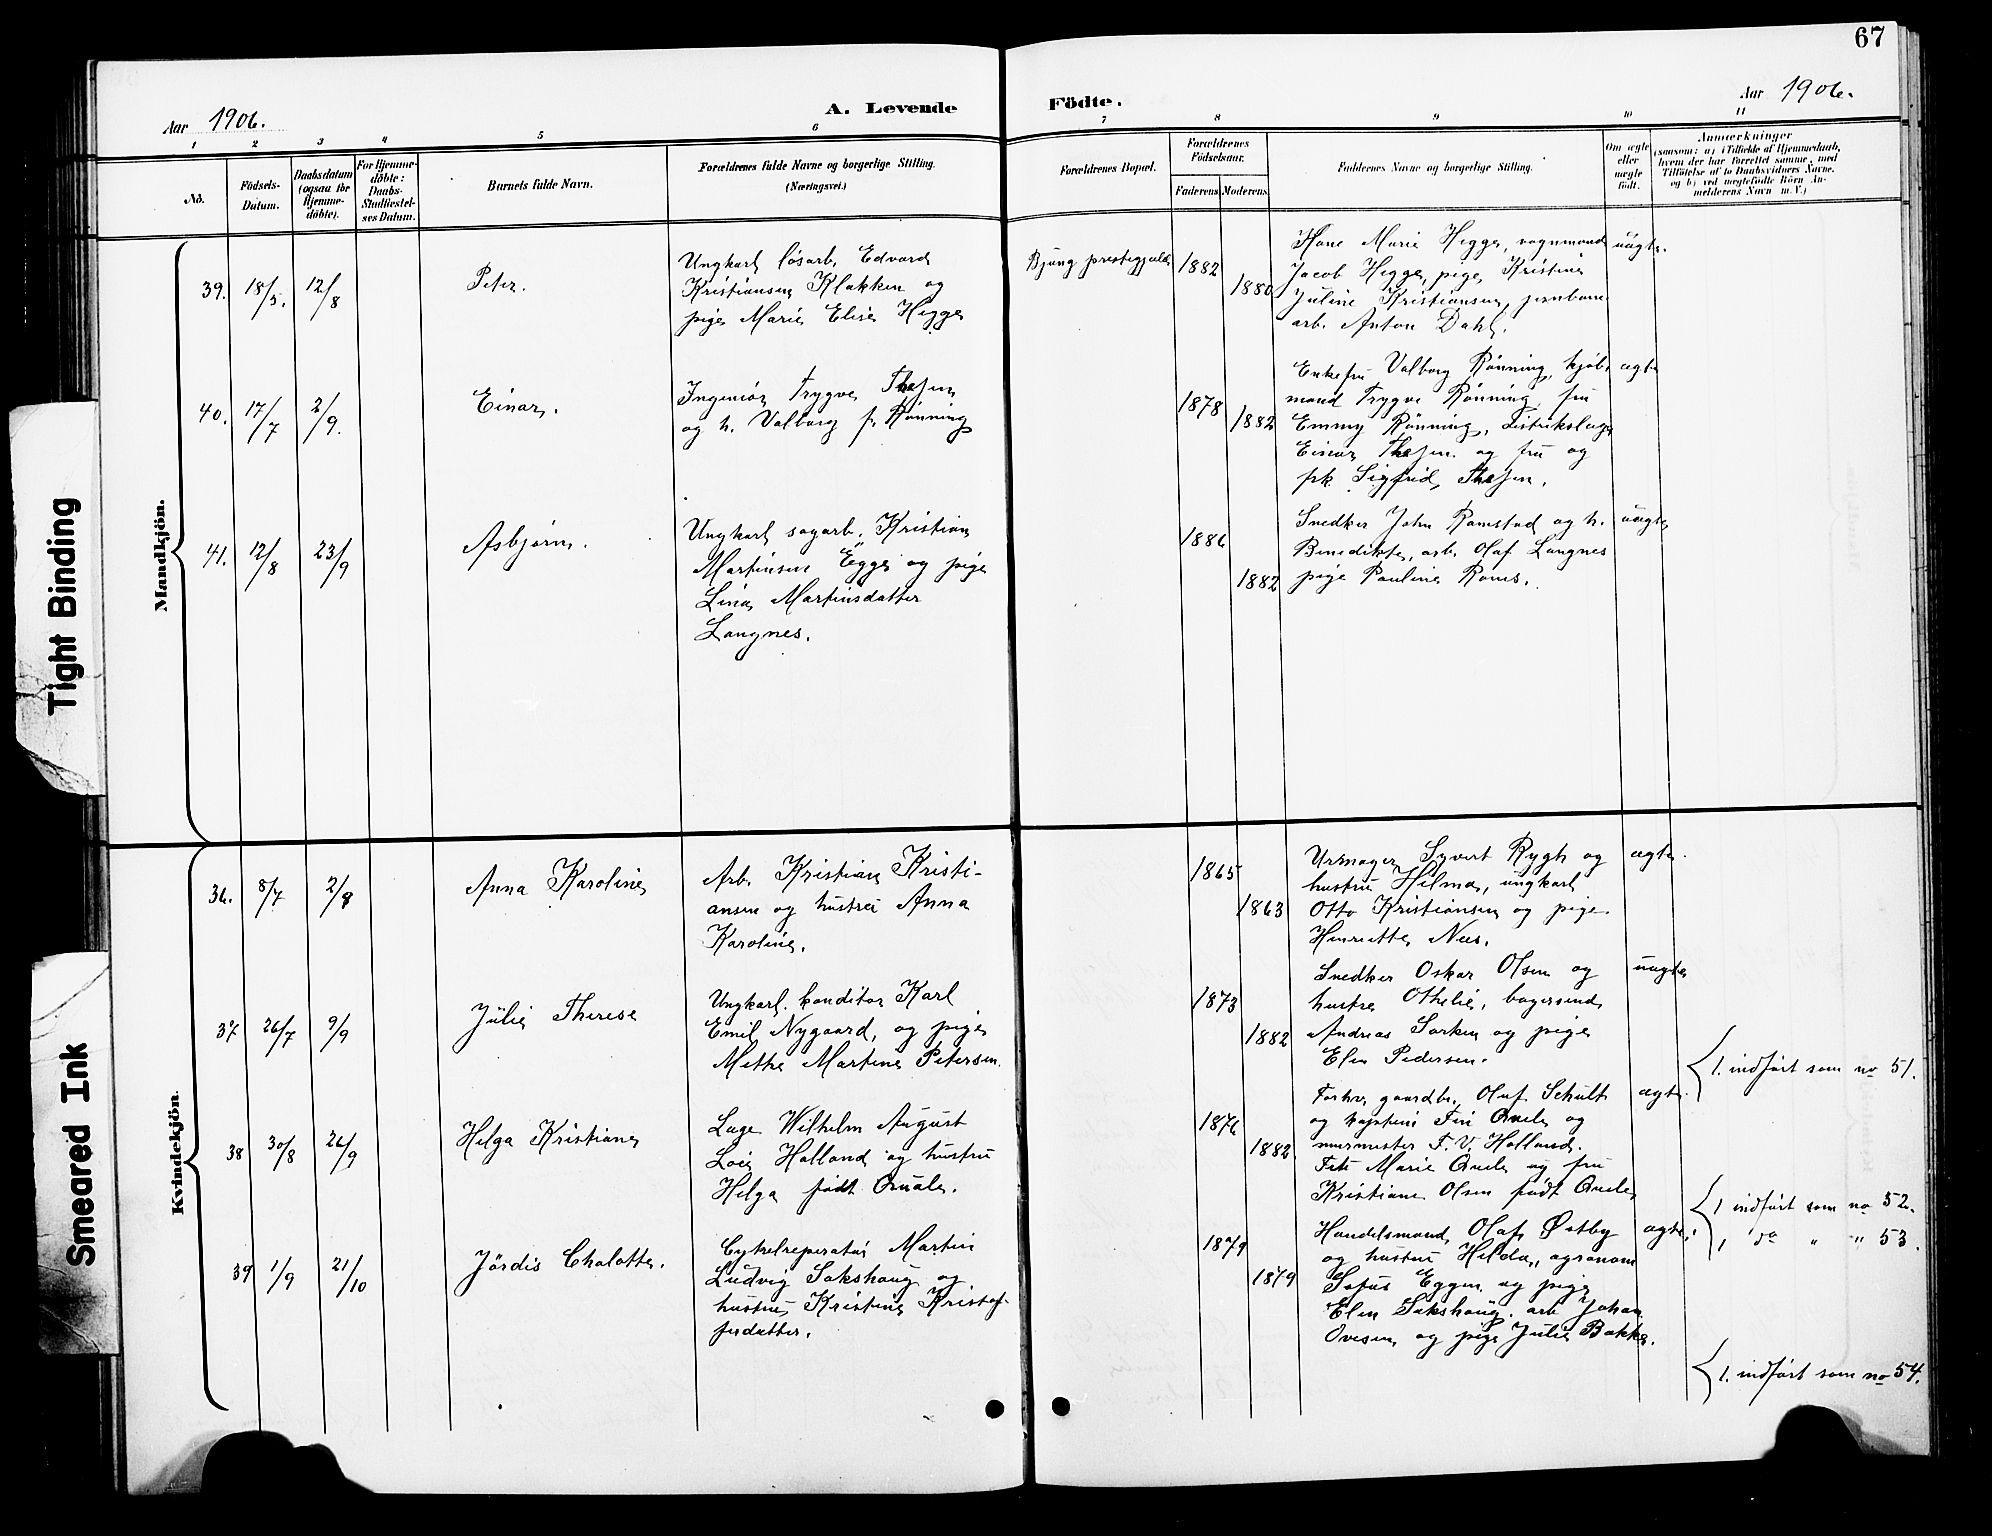 67
Aar 1906.
A. Levende
Födte.
Aar 1906.
1 2 3 4 5 6 7 8 9 10 11
No.
Födsels-
Datum.
Daabsdatum
(ogsaa for
Hjemme-
döbte).
For Hjemme-
döbte:
Daabs-
Stadfæstel-
ses Datum.
Barnets fulde Navn.
Forældrenes fulde Navne og borgerlige Stilling.
(Næringsvei.)
Forældrenes Bopæl.
Forældrenes
Födselsaar.
Faderens Moderens
Faddernes Navne og borgerlige Stilling.
Om ægte
eller
uægte
födt.
Anmærkninger
(saasom: a) i Tilfælde af Hjemmedaab,
hvem der har forrettet samme, med
Tilföielse af to Daabsvidners Navne,
og b) ved uegtefödte Börn An-
melderens Navn m. V.)
Mandkjön.
39. 18/5. 12/8
Peter.
Ungkarl løsarb. Edvard
Kristiansen Klakken og
pige Marie Elise Hegge
Bjung prestegjeld
1882
1880
Kone Marie Hegge, vognmand
Jacob Hegge, pige Kristine
Juline Kristiansen, jernbane
arb. Anton Dahl.
uægte.
40. 17/7 2/9.
Einar.
Ingeniør Trygve Thesen
og h. Valborg f. Rønning
1878
1882
Enkefru Valborg Rønning, kjøb-
mand Trygve Rønning, fru
Emmy Rønning, Distrikslæge
Einar Thesen og fru og
frk Sigfrid Thesen.
ægte
41. 12/8 23/9
Asbjørn.
Ungkarl sagarb. Kristian
Martinsen Egge og pige
Lina Martinsdatter
Langnes.
1886
1882
Snedker John Ramstad og h.
Benedikte, arb. Olaf Langnes
pige Pauline Roms.
uægte
Kvindekjön.
36. 8/7 2/8
Anna Karoline
Arb. Kristian Kristi-
ansen og hustru Anna
Karoline.
1865
1863
Urmager Syvert Rygh og
hustru Hilma, ungkarl
Otto Kristiansen og pige
Henriette Nees.
ægte.
37 26/7 9/9
Julie Therese
Ungkarl konditor Karl
Emil Nygaard, og pige
Methe Martine Petersen.
1873
1882
Snedker Oskar Olsen og
hustru Othelie, bagersvend
Andreas Larken og pige
Elen Pedersen.
uægte
1. indført som no 51.
38 30/8 26/9
Helga Kristiane
Læge Wilhelm August
Holland og hustru
Helga født Quale.
1876
1882
Forhv. gaardbr. Olaf Schult
og kaptein Fin Quale og
murmester F. V. Holland.
Marie Quale og fru
Kristiane Olsen født Quale
ægte.
1 indført som no 52.
1 do " " 53.
39 1/9 21/10
Jórdis Chalotte.
Cykelreperatør Martin
Ludvig Sakshaug og
hustru Kristine Kristof-
ferdatter.
1879
1879
Handelsmand Olaf Østby
og hustru Hilda, agronom
Sofus Eggen og pige
Elen Sakshaug, arb Johan
Ovesen og pige Julie Bakke.
ægte.
1. indført som no 54.
Tight Binding
Smeared Ink